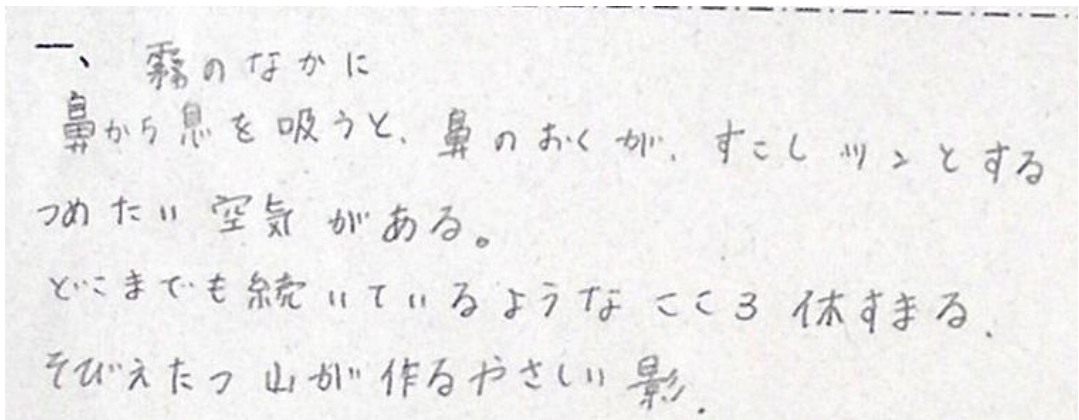 一、霧のなかに
鼻から息を吸うと、鼻のおくが、すこしツンとする
つめたい空気がある。
どこまでも続いているようなこころ休すまる、
そびえたつ山が作るやさしい影.